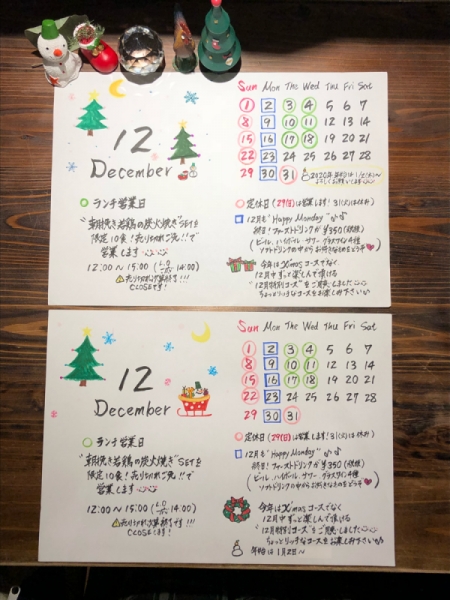 12
December
ランチ営業日
"朝挽き若鶏の炭火焼き"SETを
限定10食!売り切れご免!!で
営業します
12:00〜15:00 (L.O 14:00)
売り切れ次第終了です!!!
CLOSEです!
Sun Mon The Wed Thu Fri Sat
1 2 3 4 5 6 7
8 9 10 11 12 13 14
15 16 17 18 19 20 21
22 23 24 25 26 27 28
29 30 31
定休日(29(日)は営業します!31(火)は休み)
12月も"Happy Monday"
終日!ファーストドリンクが¥350(税抜)
(ビール、ハイボール、サワー、グラスワイン4種
ソフトドリンクの中からお好きなものをどうぞ
今年はX'masコースでなく
12月中ずっと楽しんで頂ける
"12月特別コース"をご用意しました
ちょっとリッチなコースをお楽しみ下さい
12
December
ランチ営業日
"朝挽き若鶏の炭火焼き"SETを
限定10食!売り切れご免!!で
営業します
12:00〜15:00 (L.O 14:00)
売り切れ次第終了です!!!
CLOSEです!
Sun Mon The Wed Thu Fri Sat
1 2 3 4 5 6 7
8 9 10 11 12 13 14
15 16 17 18 19 20 21
22 23 24 25 26 27 28
29 30 31
定休日(29(日)は営業します!31(火)は休み)
12月も"Happy Monday"
終日!ファーストドリンクが¥350(税抜)
(ビール、ハイボール、サワー、グラスワイン4種
ソフトドリンクの中からお好きなものをどうぞ
今年はX'masコースでなく
12月中ずっと楽しんで頂ける
"12月特別コース"をご用意しました
ちょっとリッチなコースをお楽しみ下さい
年始は1月2日〜